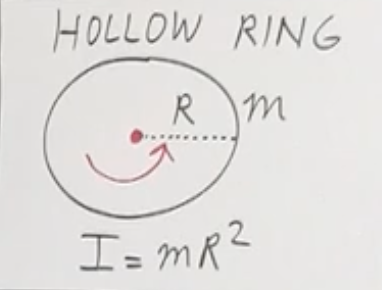 HOLLOW RING
R m
I = mR²